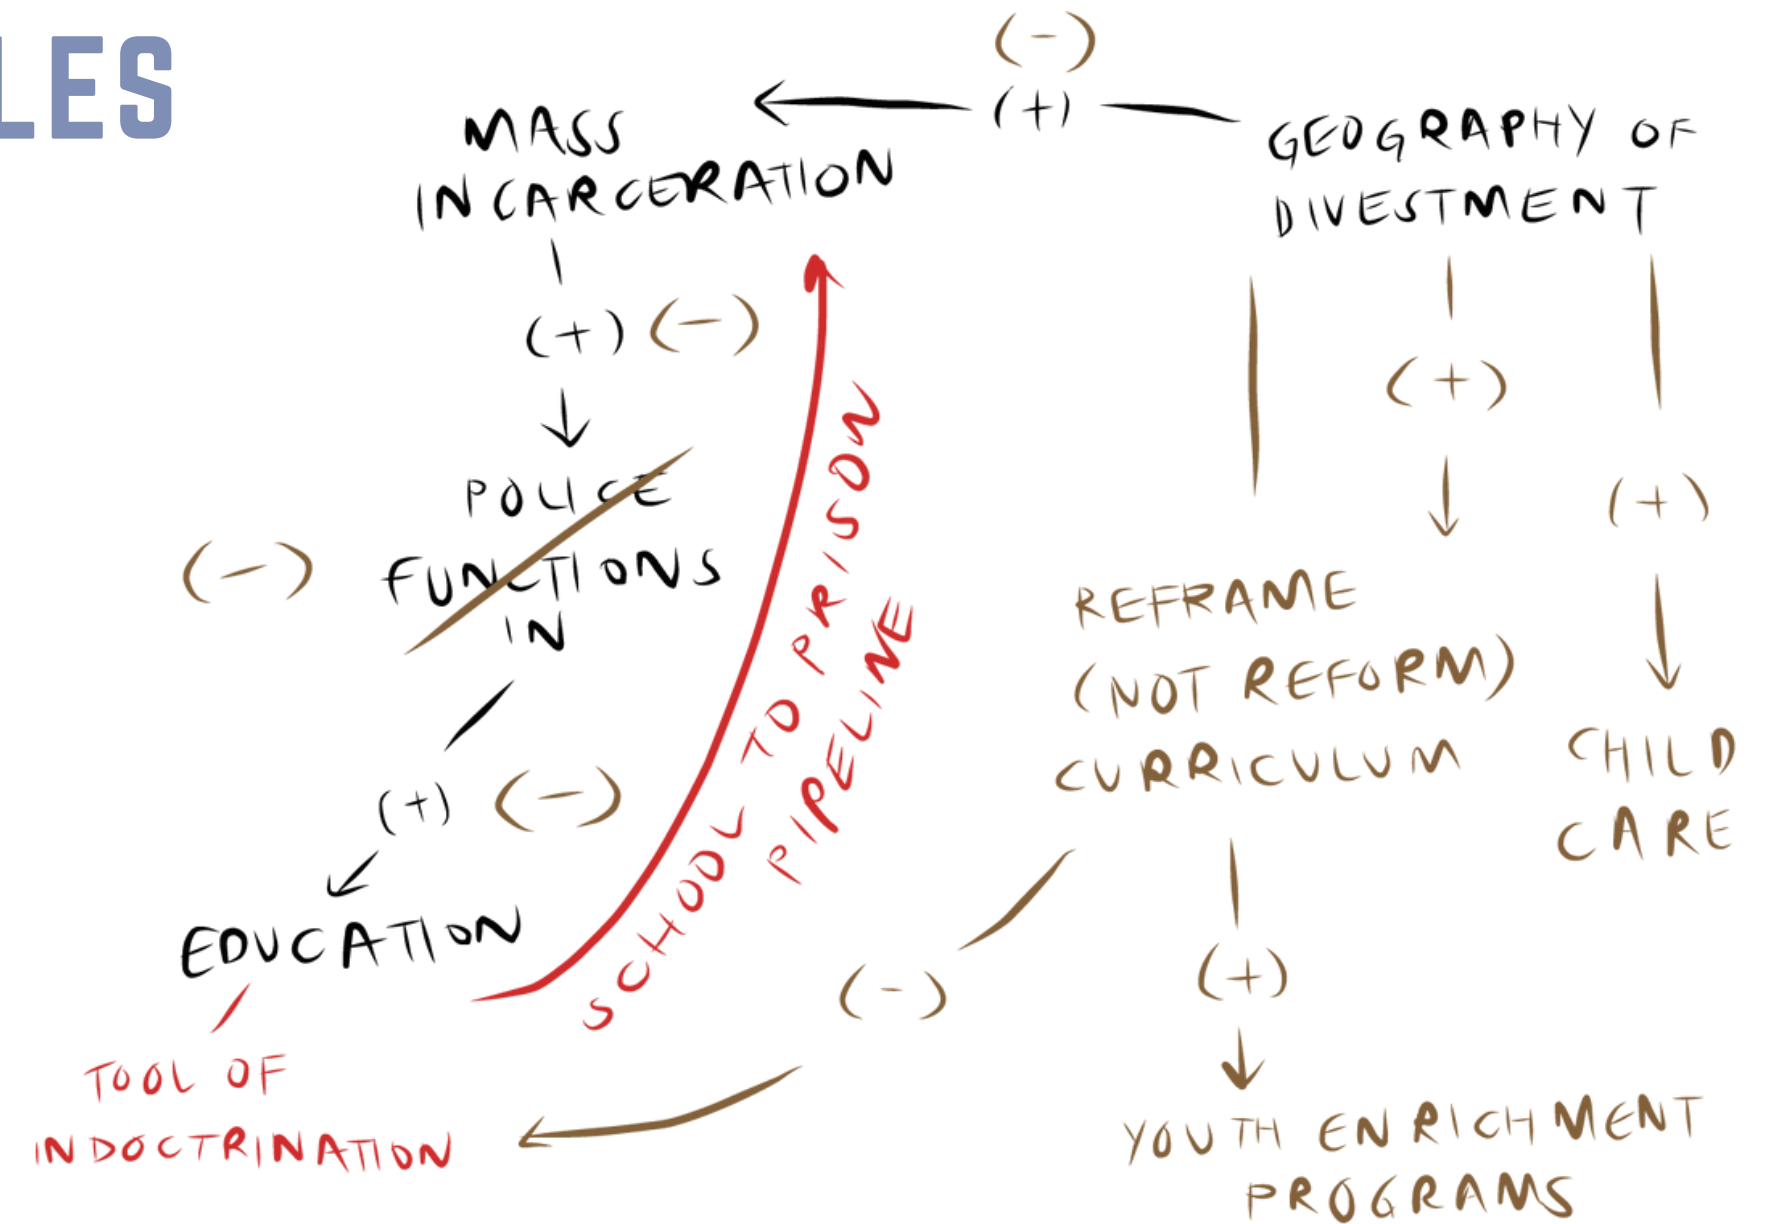 LES
(-)
(+)
MASS
INCARCERATION
GEOGRAPHY OF
DIVESTMENT
(+) (-)
POLICE
FUNCTIONS
IN
(-)
(+) (-)
EDUCATION
TOOL OF
INDOCTRINATION
SCHOOL TO PRISON
PIPELINE
(+)
(+)
REFRAME
(NOT REFORM)
CURRICULUM
CHILD
CARE
(-)
(+)
YOUTH ENRICHMENT
PROGRAMS